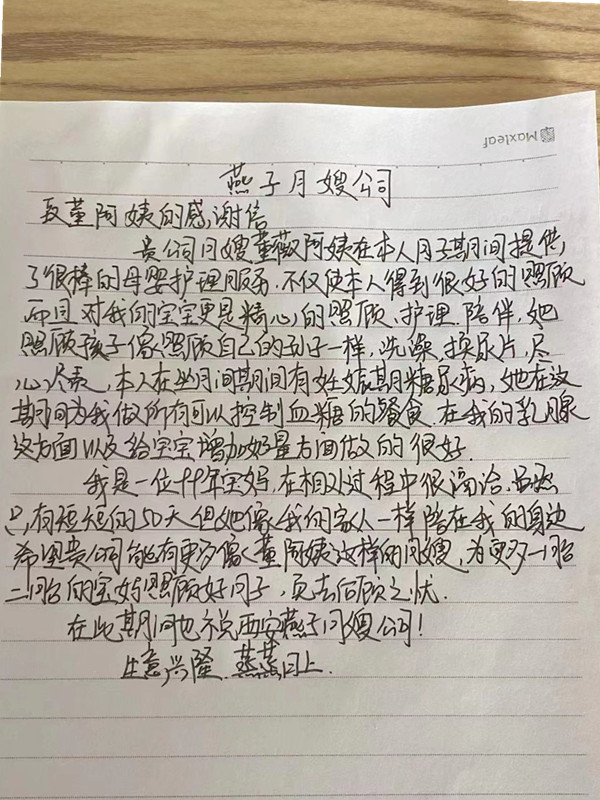 Maxleaf
燕子月嫂公司
致董阿姨的感谢信
贵公司月嫂董薇阿姨在本人月子期间提供
了很棒的母婴护理服务.不仅使本人得到很好的照顾
而且对我的宝宝更是精心的照顾、护理.陪伴,她
照顾孩子像照顾自己的孙子一样,洗澡,换尿片,尽
心尽责,本人在坐月间期间有妊娠期糖尿病,她在这
期间为我做所有可以控制血糖的餐食.在我的乳腺
这方面以及给宝宝增加奶量方面做的很好.
我是一位99年宝妈,在相处过程中很融洽.虽然
只有短短的50天但她像我的家人一样陪在我的身边
希望贵公司能有更多像董阿姨这样的月嫂,为更多一胎
二胎的宝妈照顾好月子,页去后顾之忧.
在此期间也祝西安燕子月嫂公司!
生意兴隆.蒸蒸日上.